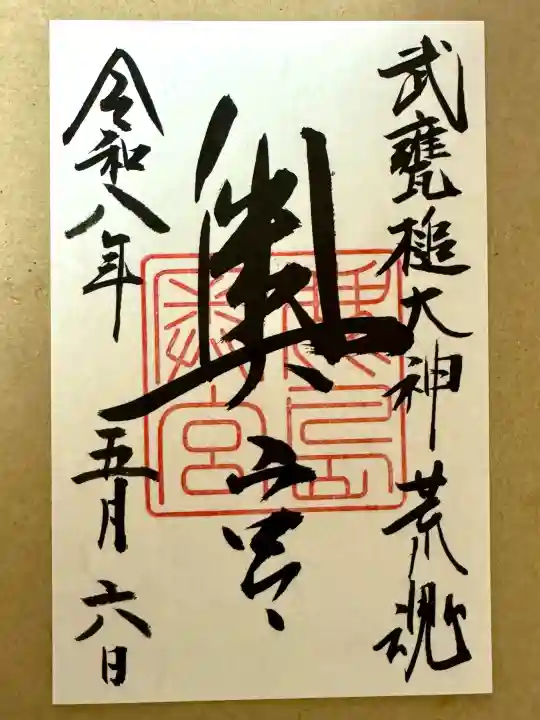 武甕槌大神荒魂
奥宮
鹿島
奥宮
令和八年五月六日